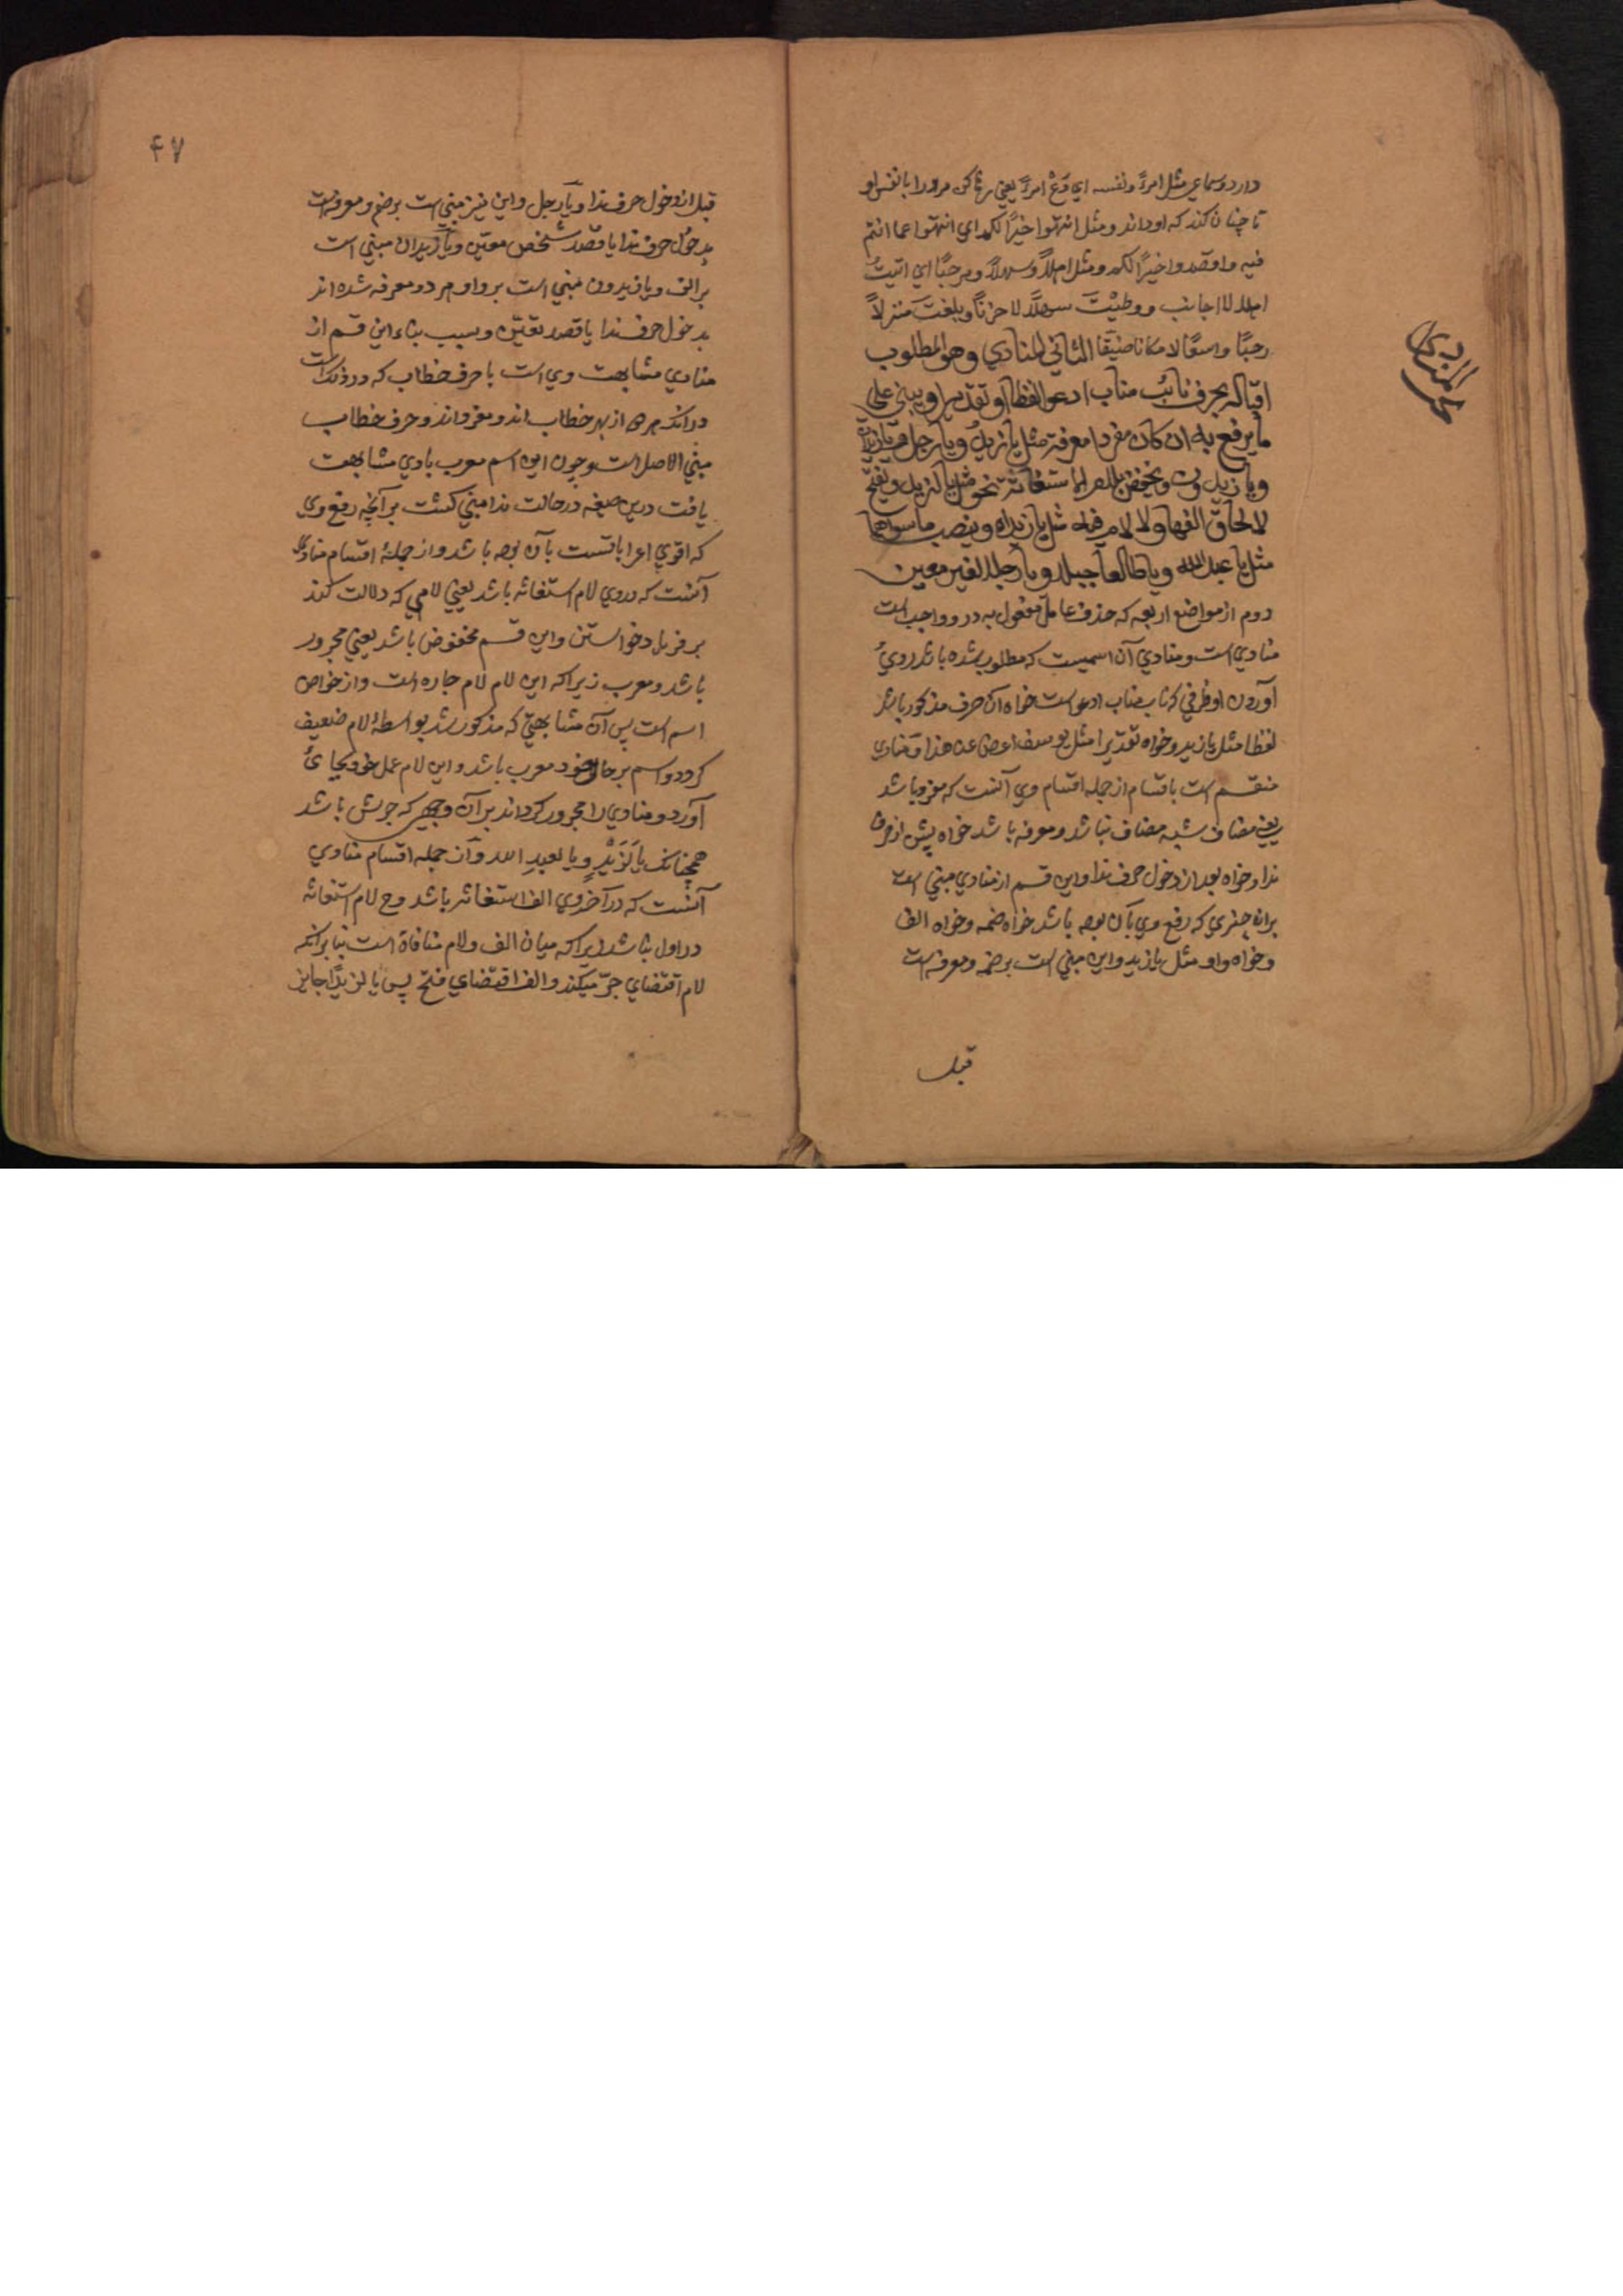 دارد و سماعی مثل امرءً و نفسه ای دَعْ امرءً یعنی رها کن مرد را با نفس او
تا چنان کند که او داند و مثل انتهوا خیرًا لکم ای انتهوا عما انتم
فیه و اقصدوا خیرًا لکم و مثل اهلاً و سهلاً و مرحبًا ای اتیتَ
اهلا لا اجانب و وطیْتَ سهلاً لا حزنًا و بلغتَ منزلاً
رحبًا واسعًا لا مکانا ضیقًا الثانی المنادي وهو المطلوب
اقباله بحرف نائب مناب ادعو لفظا او تقدیرا ویبنی علی
ما یرفع به ان کان مفردا معرفة مثل یا زیدُ ویا رجل ویا زیدان
ویا زیدون ویخفض بلام الاستغاثة نحو مثل یا لزید ویفتح
لالحاق الفها ولا لام فیه مثل یا زیداه وینصب ما سواهما
مثل یا عبد الله ویا طالعا جبلا ویا رجلا لغیر معین
دوم از مواضع اربعه که حذف عامل مفعول به درو واجب است
منادي است و منادي آن اسمیست که مطلوب شده باشد روي
آوردن او بحرفی که نایب مناب ادعو است خواه آن حرف مذکور باشد
لفظا مثل یا زید و خواه تقدیرا مثل یوسف اعرض عن هذا و منادی
منقسم است باقسام از جمله اقسام وي آنست که مفرد باشد
یعنی مضاف و شبه مضاف نباشد و معرفه باشد خواه پیش از حرف
ندا و خواه بعد از دخول حرف ندا و این قسم از منادي مبنی است
بران چیزي که رفع وي بآن بوده باشد خواه ضمه و خواه الف
و خواه واو مثل یا زید و این مبنی است بر ضمه و معرفه است
قبل
۴۷
قبل از دخول حرف ندا و یا رجل و این نیز مبنی است بر ضم و معرفه است
بدخول حرف ندا با قصد شخص معیّن و یا زیدان مبنی است
بر الف و یا زیدون مبنی است بر واو هر دو معرفه شده اند
بدخول حرف ندا با قصد تعیّن و سبب بناء این قسم از
منادي مشابهت وي است با حرف خطاب که در ذلک است
در آنکه هر دو از بهر خطاب اند و مفرد اند و حرف خطاب
مبنی الاصل است و چون این اسم معرب با وي مشابهت
یافت درین صیغه در حالت ندا مبنی گشت بر آنچه رفع وي
که اقوي اعرابات است بآن بوده باشد و از جمله اقسام منادي
آنست که دروي لام استغاثه باشد یعنی لامی که دلالت کند
بر فریاد خواستن و این قسم مخفوض باشد یعنی مجرور
باشد و معرب زیرا که این لام لام جاره است و از خواص
اسم است پس آن مشابهتی که مذکور شد بواسطۀ لام ضعیف
گردد و اسم بر حال خود معرب باشد و این لام عمل خود بجاي
آورد و منادي را مجرور گرداند بر آن وجهی که جرش باشد
همچنانکه یا لَزَیْدٍ و یا لعبدِ الله و از جمله اقسام منادي
آنست که در آخر وي الف استغاثه باشد و ح لام استغاثه
در اول نباشد زیرا که میان الف و لام منافاة است بنا بر آنکه
لام اقتضاي جرّ میکند و الف اقتضاي فتح پس یا لزیدًا جایز